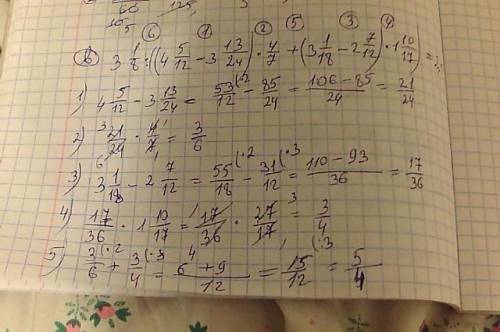 60 125,
10 5
⑥ ① ② ⑤ ③ ④
⑥ 3 1/8 : ((4 5/12 - 3 13/24) · 4/7 + (3 1/18 - 2 7/12) · 1 10/17) =
1) 4 5/12 - 3 13/24 = 53/12 (·2 - 85/24 = 106 - 85/24 = 21/24
2) 3 21/24 · 4/7 1 = 3/6
3) 3 1/18 - 2 7/12 = 55/18 (·2 - 31/12 (·3 = 110 - 93/36 = 17/36
4) 17/36 · 1 10/17 = 1 17/36 4 · 27/17 3 = 3/4
5) 3/6 (·2 + 3/4 (·3 = 6 + 9/12 = 15/12 (:3 = 5/4